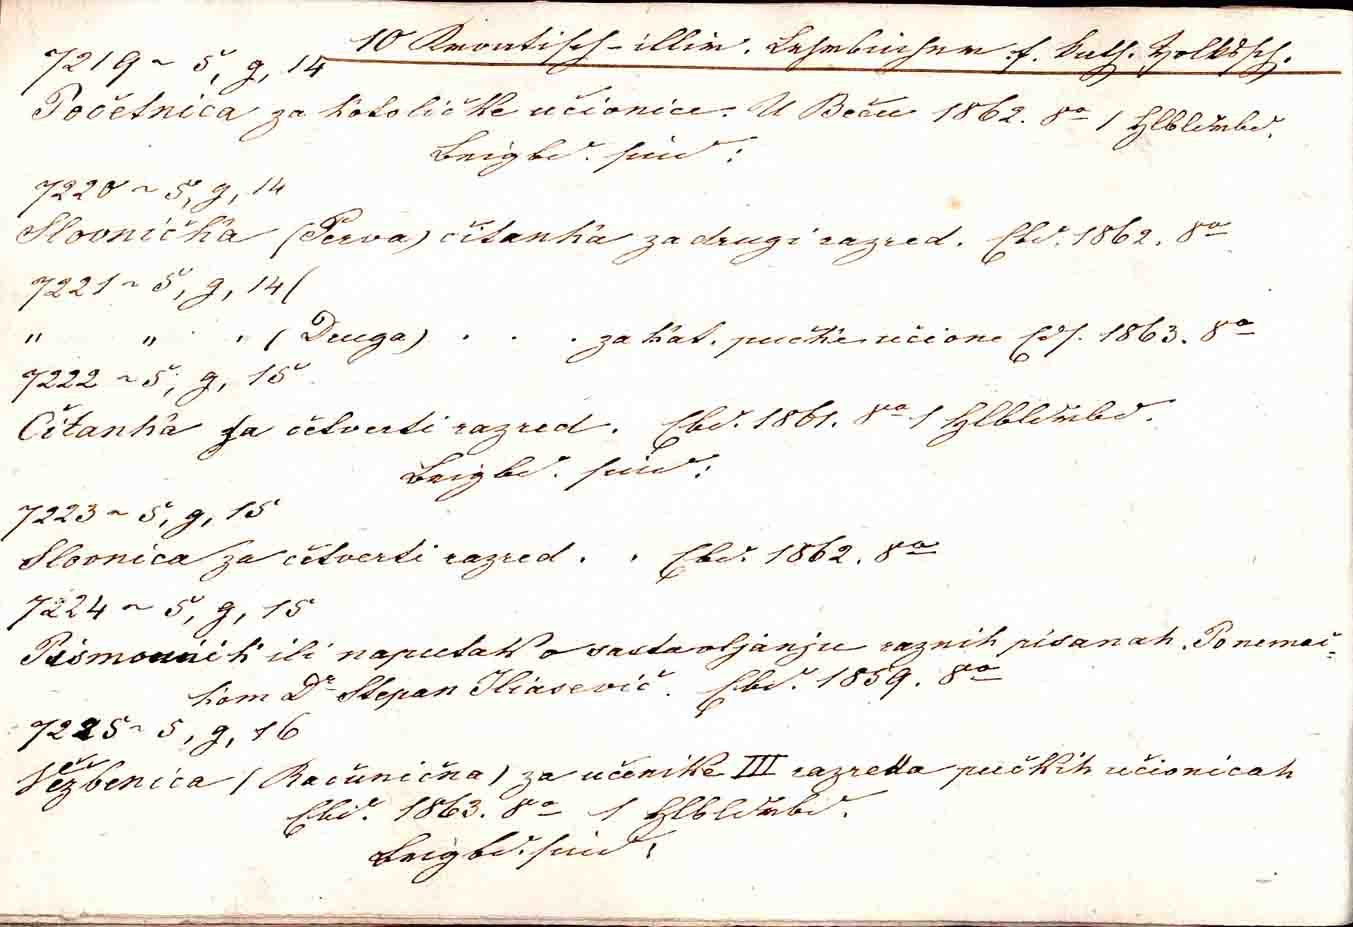 10 Kroatisch-illir. Lehrbücher f. kath. Volkssch.
7219 ~ 5, g, 14
Početnica za katoličke učionice. U Beču 1862. 8o 1 Hlbldrbd.
Beigbd. sind:
7220 ~ 5, g, 14
Slovnička (Perva) čitanka za drugi razred. Ebd. 1862. 8o
7221 ~ 5, g, 14(
" " " (Druga) . . . za kat. pučke učione Ebd. 1863. 8o
7222 ~ 5, g, 15
Čitanka za četverti razred. Ebd. 1861. 8o 1 Hlbldrbd.
Beigbd. sind:
7223 ~ 5, g, 15
Slovnica za četverti razred. . Ebd. 1862. 8o
7224 ~ 5, g, 15
Pismovnik ili naputak o sastavljanju raznih pisanah. Po nemač-
kom Dr Stepan Iliasević. Ebd. 1859. 8o
7225 ~ 5, g, 16
Vežbenica (Računična) za učenike III razreda pučkih učionicah
Ebd. 1863. 8o 1 Hlbldrbd.
Beigbd. sind: